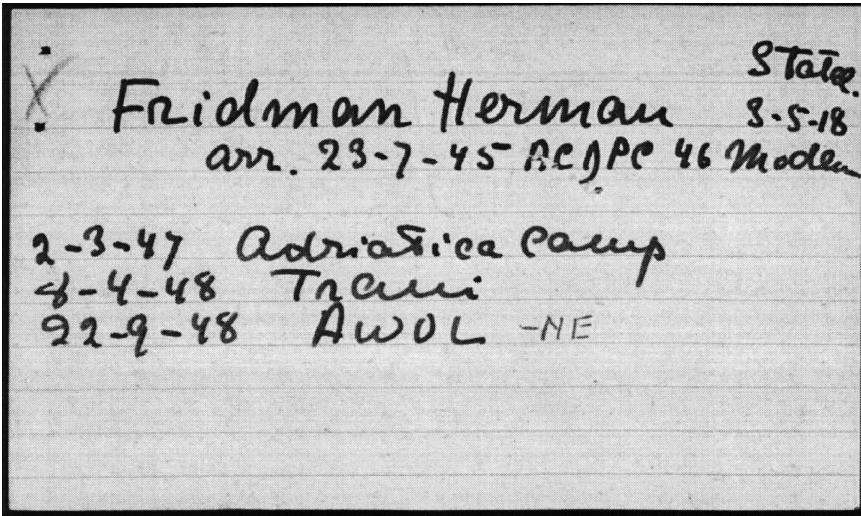 Statel.
X Fridman Herman 3-5-18
arr. 23-7-45 ACDPC 46 Moden
2-3-47 Adriatica Camp
8-4-48 Trani
22-9-48 AWOL -NE